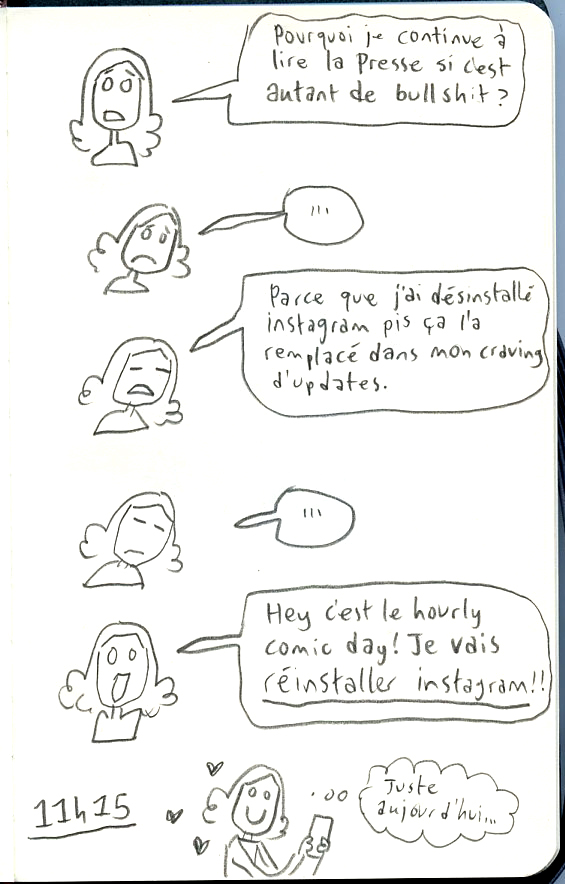 Pourquoi je continue à
lire la Presse si c'est
autant de bullshit?
...
Parce que j'ai désinstallé
instagram pis ça l'a
remplacé dans mon craving
d'updates.
...
Hey c'est le hourly
comic day! Je vais
réinstaller instagram!!
11h15
Juste
aujourd'hui...